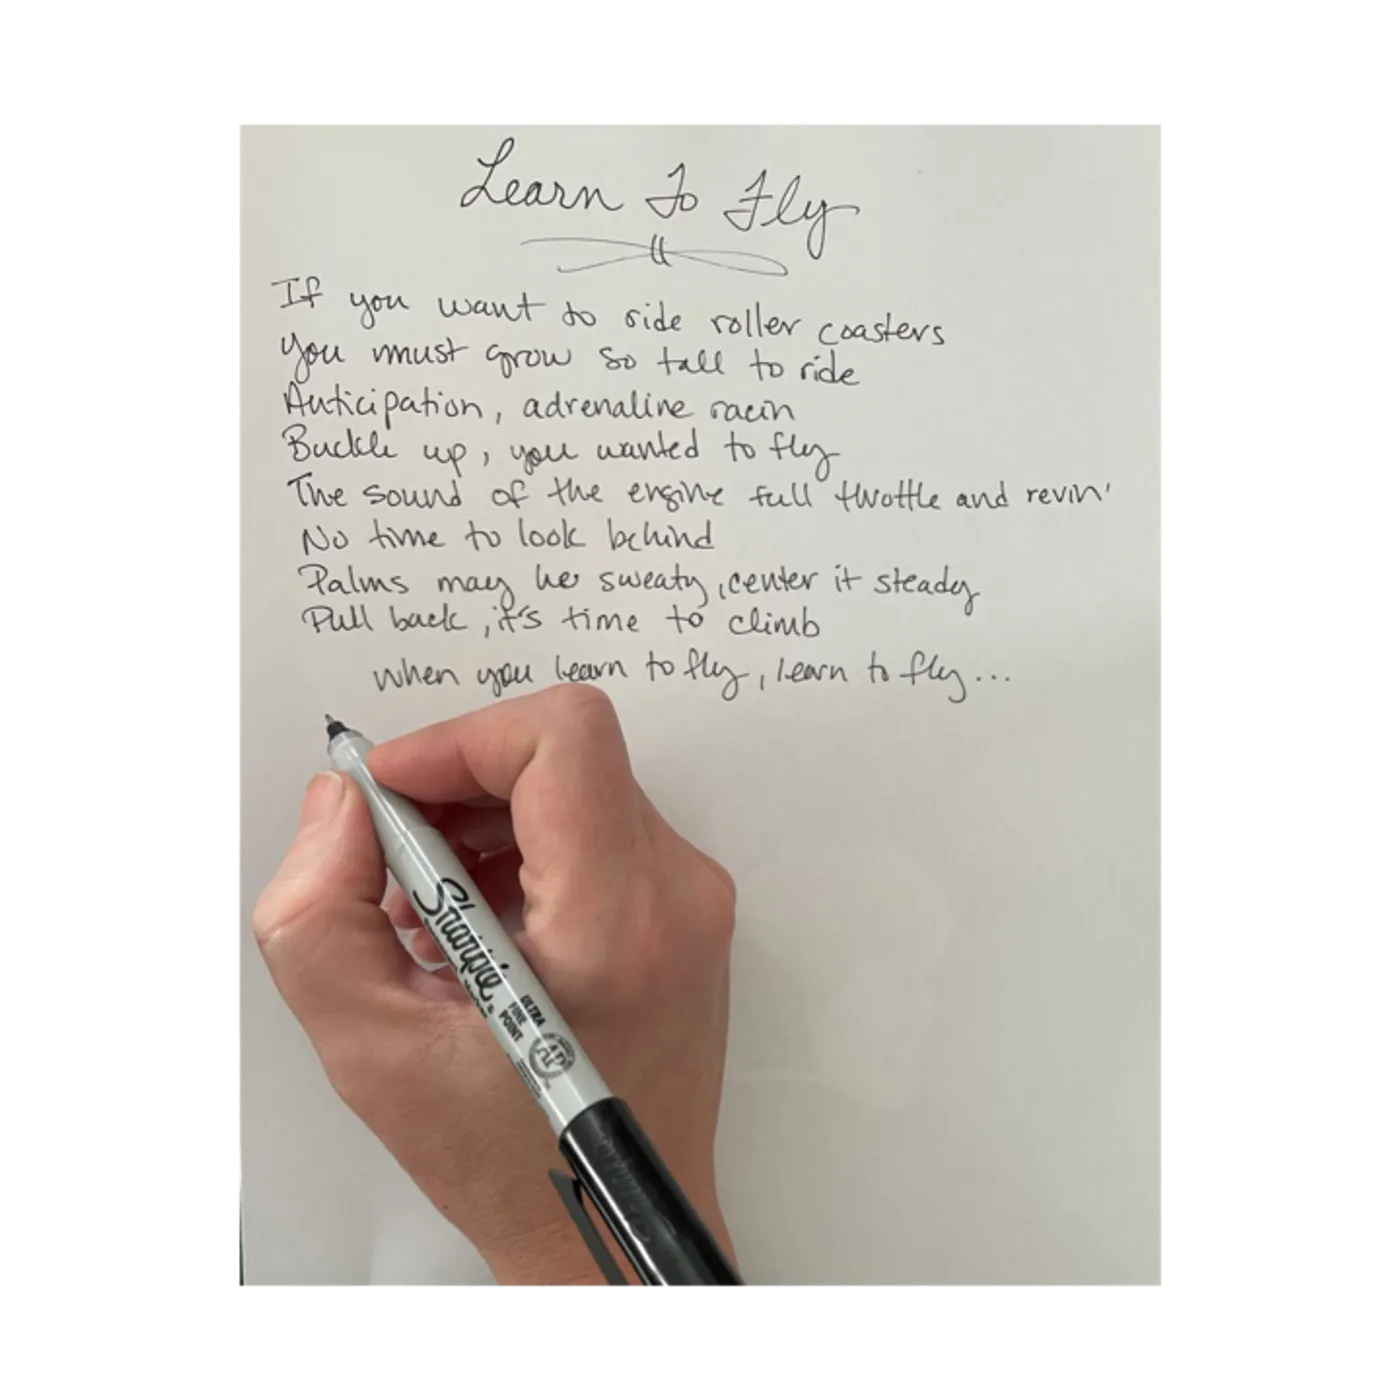 Learn To Fly
If you want to ride roller coasters
You must grow so tall to ride
Anticipation, adrenaline racin
Buckle up, you wanted to fly
The sound of the engine full throttle and revin'
No time to look behind
Palms may be sweaty, center it steady
Pull back, it's time to climb
When you learn to fly, learn to fly...
Sharpie
ULTRA
FINE
POINT
AP